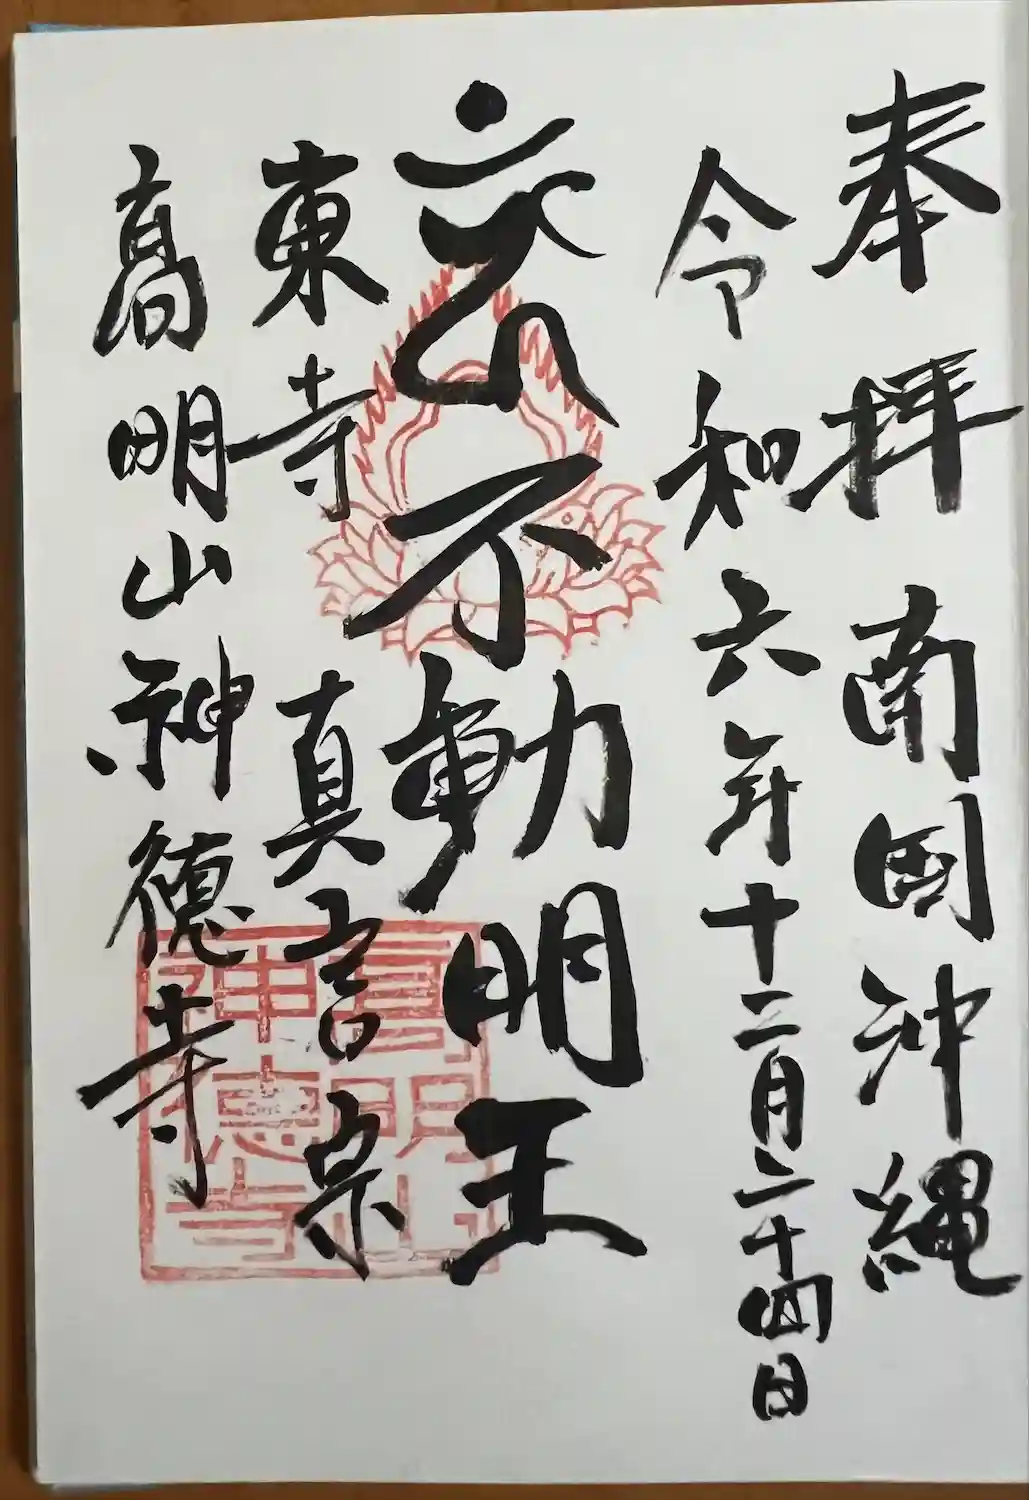 奉拝 南国沖縄
令和六年十二月二十四日
不動明王
東寺 真言宗
高明山神徳寺
高明山
神徳寺